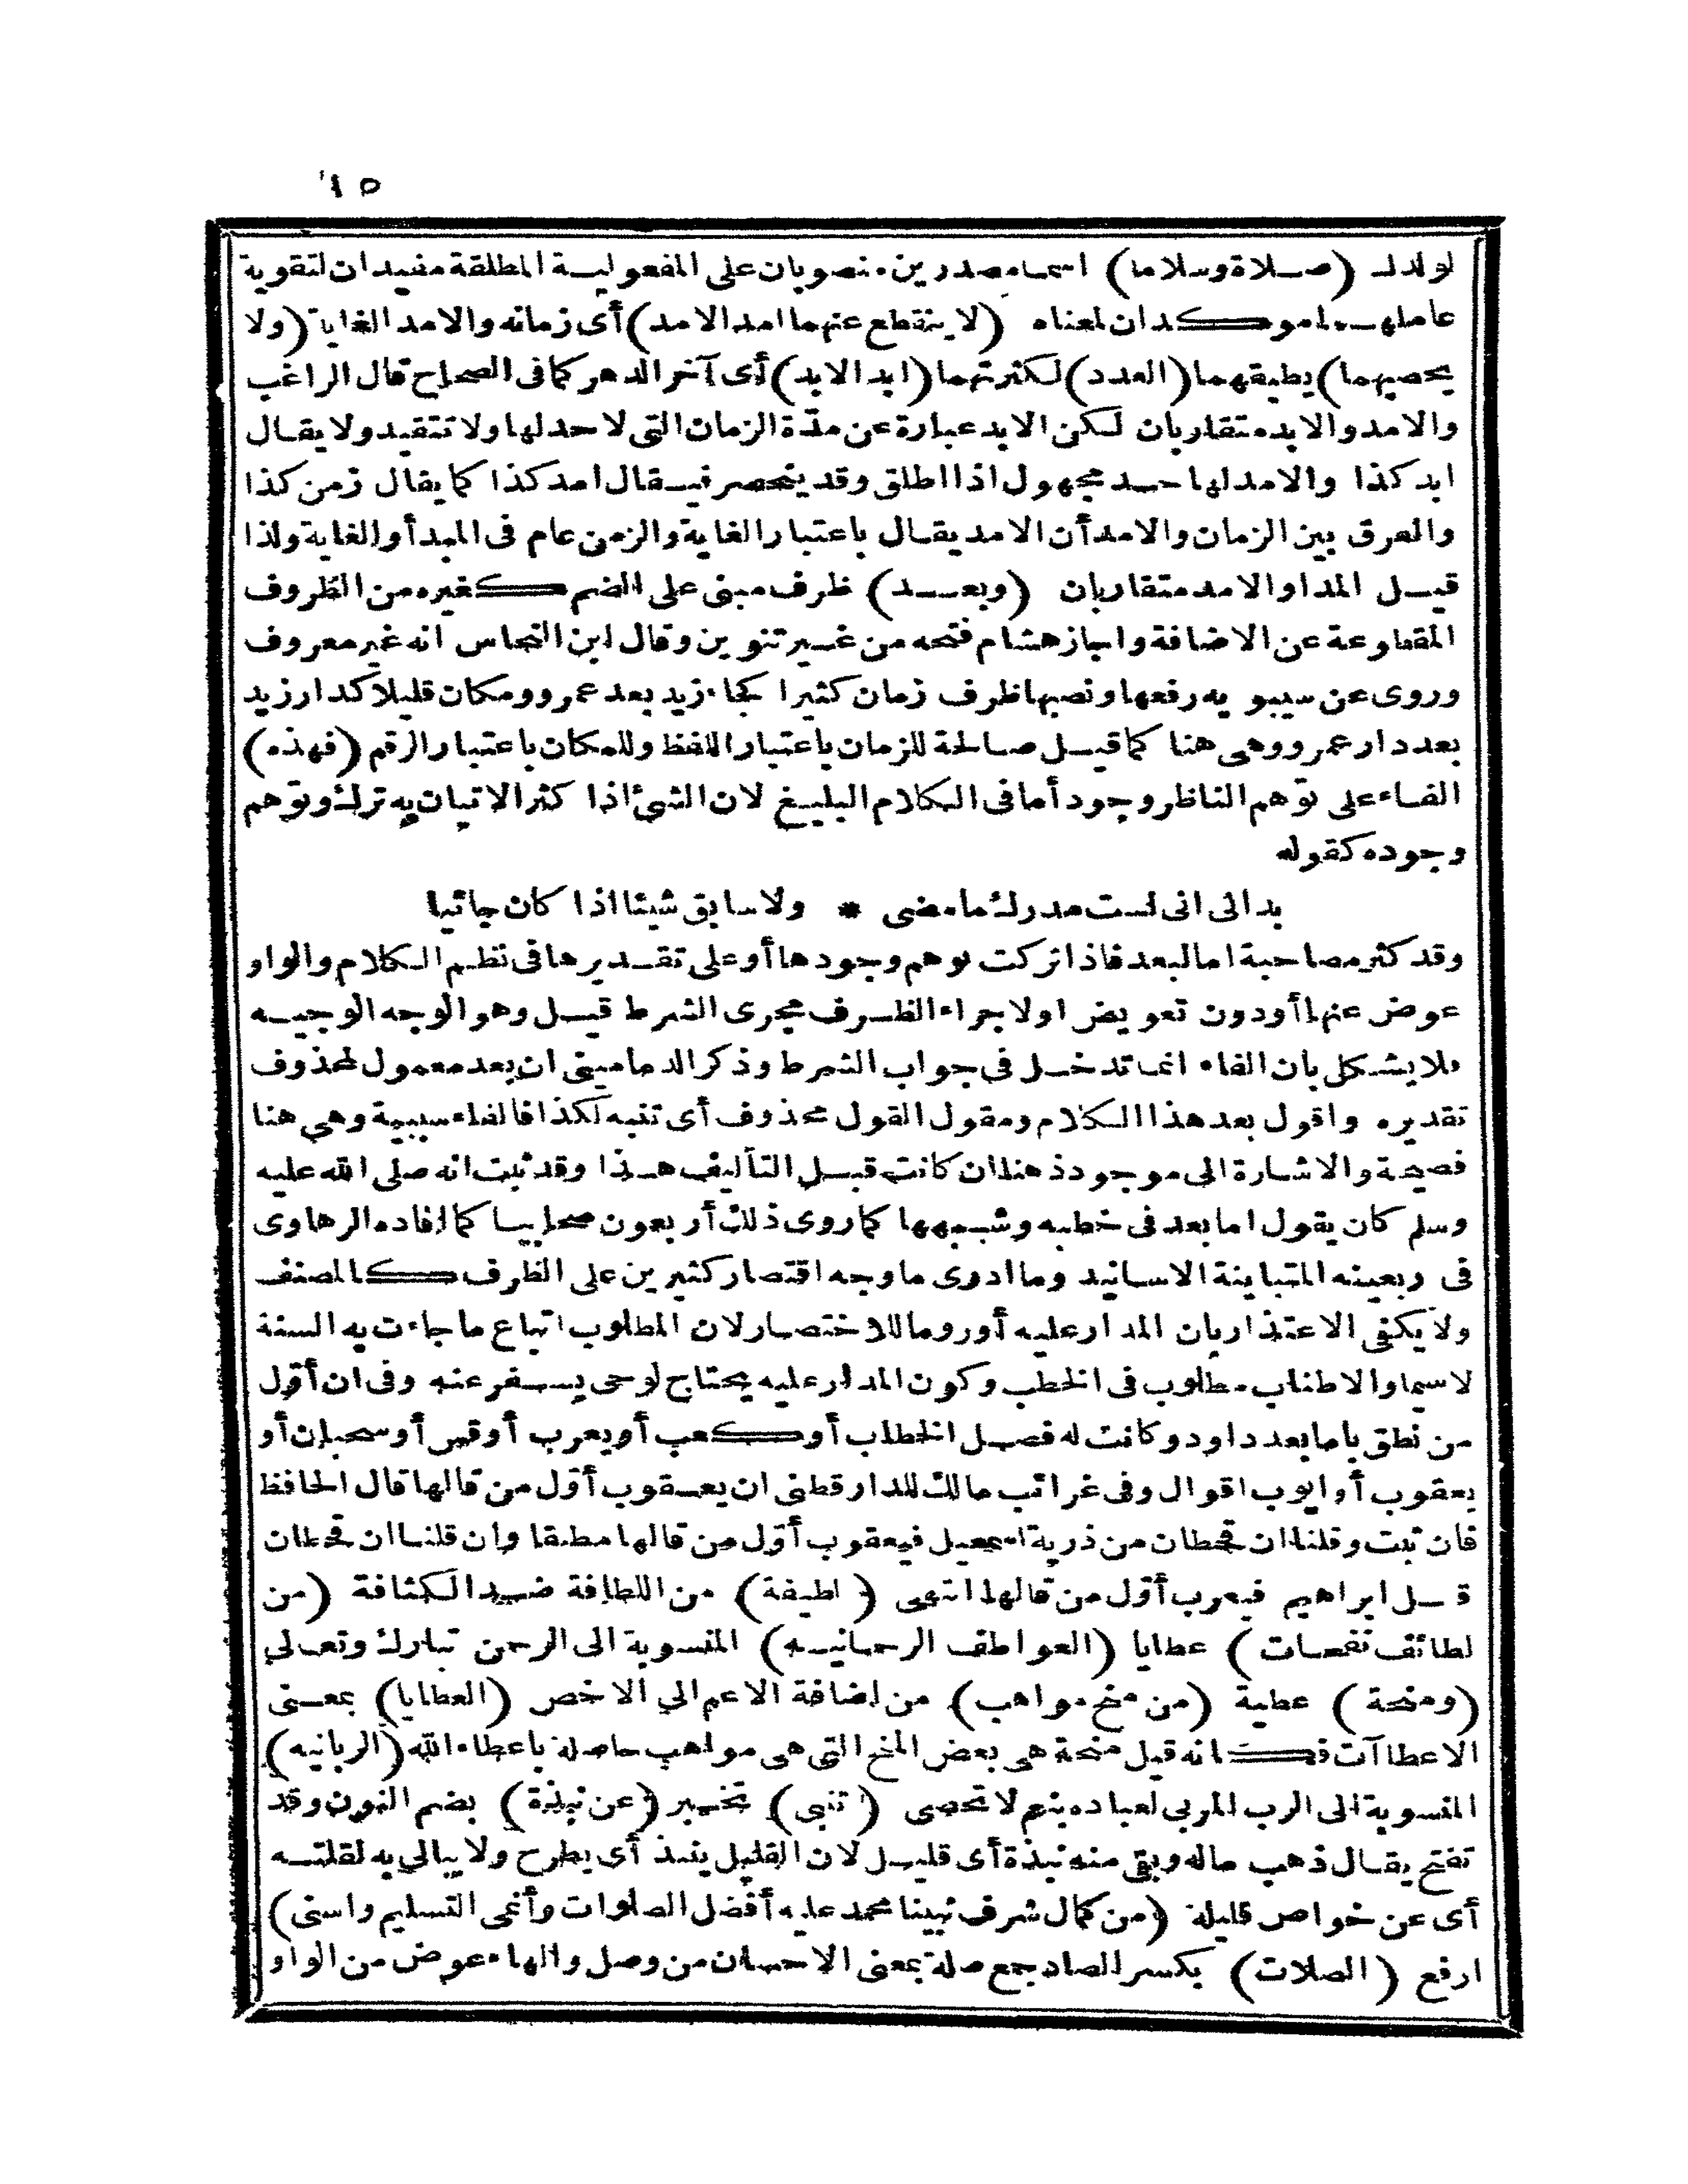 ١٥
(صلاة وسلاما) اسما مصدرين منصوبان على المفعولية المطلقة مفيدان لتقوية
عاملهما مؤكدان لمعناه (لا ينقطع عنهما امد الامد) أى زمانه والامد الغاية (ولا
يحصيهما) يطيقهما (العدد) لكثرتهما (ابد الابد) أى آخر الدهر كما فى الصحاح قال الراغب
والامد والابد متقاربان لكن الابد عبارة عن مدّة الزمان التى لا حد لها ولا تتقيد ولا يقال
ابد كذا والامد لها حد مجهول اذا اطلق وقد ينحصر فيقال امد كذا كما يقال زمن كذا
والفرق بين الزمان والامد أن الامد يقال باعتبار الغاية والزمن عام فى المبدأ والغاية ولذا
قيل المدا والامد متقاربان (وبعد) ظرف مبنى على الضم كغيره من الظروف
المقطوعة عن الاضافة واجاز هشام فتحه من غير تنوين وقال ابن النحاس انه غير معروف
وروى عن سيبويه رفعها ونصبها ظرف زمان كثيرا كجاء زيد بعد عمرو ومكان قليلا كدار زيد
بعد دار عمرو وهى هنا كما قيل صالحة للزمان باعتبار اللفظ وللمكان باعتبار الرقم (فهذه)
الفاء على توّهم الناظر وجود أما فى الكلام البليغ لان الشئ اذا كثر الاتيان به ترك وتوّهم
وجوده كقوله
بدا لى انى لست مدرك ما مضى * ولا سابق شيئا اذا كان جائيا
وقد كثر مصاحبة اما لبعد فاذا تركت توهم وجودها أو على تقديرها فى نظم الكلام والواو
عوض عنها أو دون تعويض اولا جراء الظرف مجرى الشرط قيل وهو الوجه الوجيه
فلا يشكل بان الفاء انما تدخل فى جواب الشرط وذكر الدمامينى ان بعد معمول لمحذوف
تقديره واقول بعد هذا الكلام ومقول القول محذوف أى تنبه لكذا فالفاء سببية وهى هنا
فصيحة والاشارة الى موجود ذهنا ان كانت قبل التأليف هذا وقد ثبت انه صلى الله عليه
وسلم كان يقول اما بعد فى خطبه وشبهها كما روى ذلك أربعون صحابيا كما افاده الرهاوى
فى ربعينه المتباينة الاسانيد وما ادرى ما وجه اقتصار كثيرين على الظرف كالمصنف
ولا يكفى الاعتذار بان المدار عليه أو روما للاختصار لان المطلوب اتباع ما جاءت به السنة
لا سيما والاطناب مطلوب فى الخطب وكون المدار عليه يحتاج لوحى يسفر عنه وفى ان أوّل
من نطق باما بعد داود وكانت له فصل الخطاب أو كعب أو يعرب أو قس أو سحبان أو
يعقوب أو ايوب اقوال وفى غرائب مالك للدارقطنى ان يعقوب أوّل من قالها قال الحافظ
فان ثبت وقلنا ان قحطان من ذرية اسمعيل فيعقوب أوّل من قالها مطبقا وان قلنا ان قحطان
قبل ابراهيم فيعرب أوّل من قالها انتهى (لطيفة) من اللطافة ضد الكثافة (من
لطائف نفحات) عطايا (العواطف الرحمانيه) المنسوبة الى الرحمن تبارك وتعالى
(ومنحة) عطية (من منح مواهب) من اضافة الاعم الى الاخص (العطايا) بمعنى
الاعطاآت فكانه قيل منحة هى بعض المنح التى هى مواهب حاصلة باعطاء الله (الربانيه)
المنسوبة الى الرب المربى لعباده بنعم لا تحصى (تنبى) تخبر (عن نبذة) بضم النون وقد
تفتح يقال ذهب ماله وبقى منه نبذة أى قليل لان القليل ينبذ أى يطرح ولا يبالى به لقلته
أى عن خواص قليلة (من كمال شرف نبينا محمد عليه أفضل الصلوات وأنمى التسليم واسنى)
ارفع (الصلات) بكسر الصاد جمع صلة بمعنى الاحسان من وصل والهاء عوض من الواو